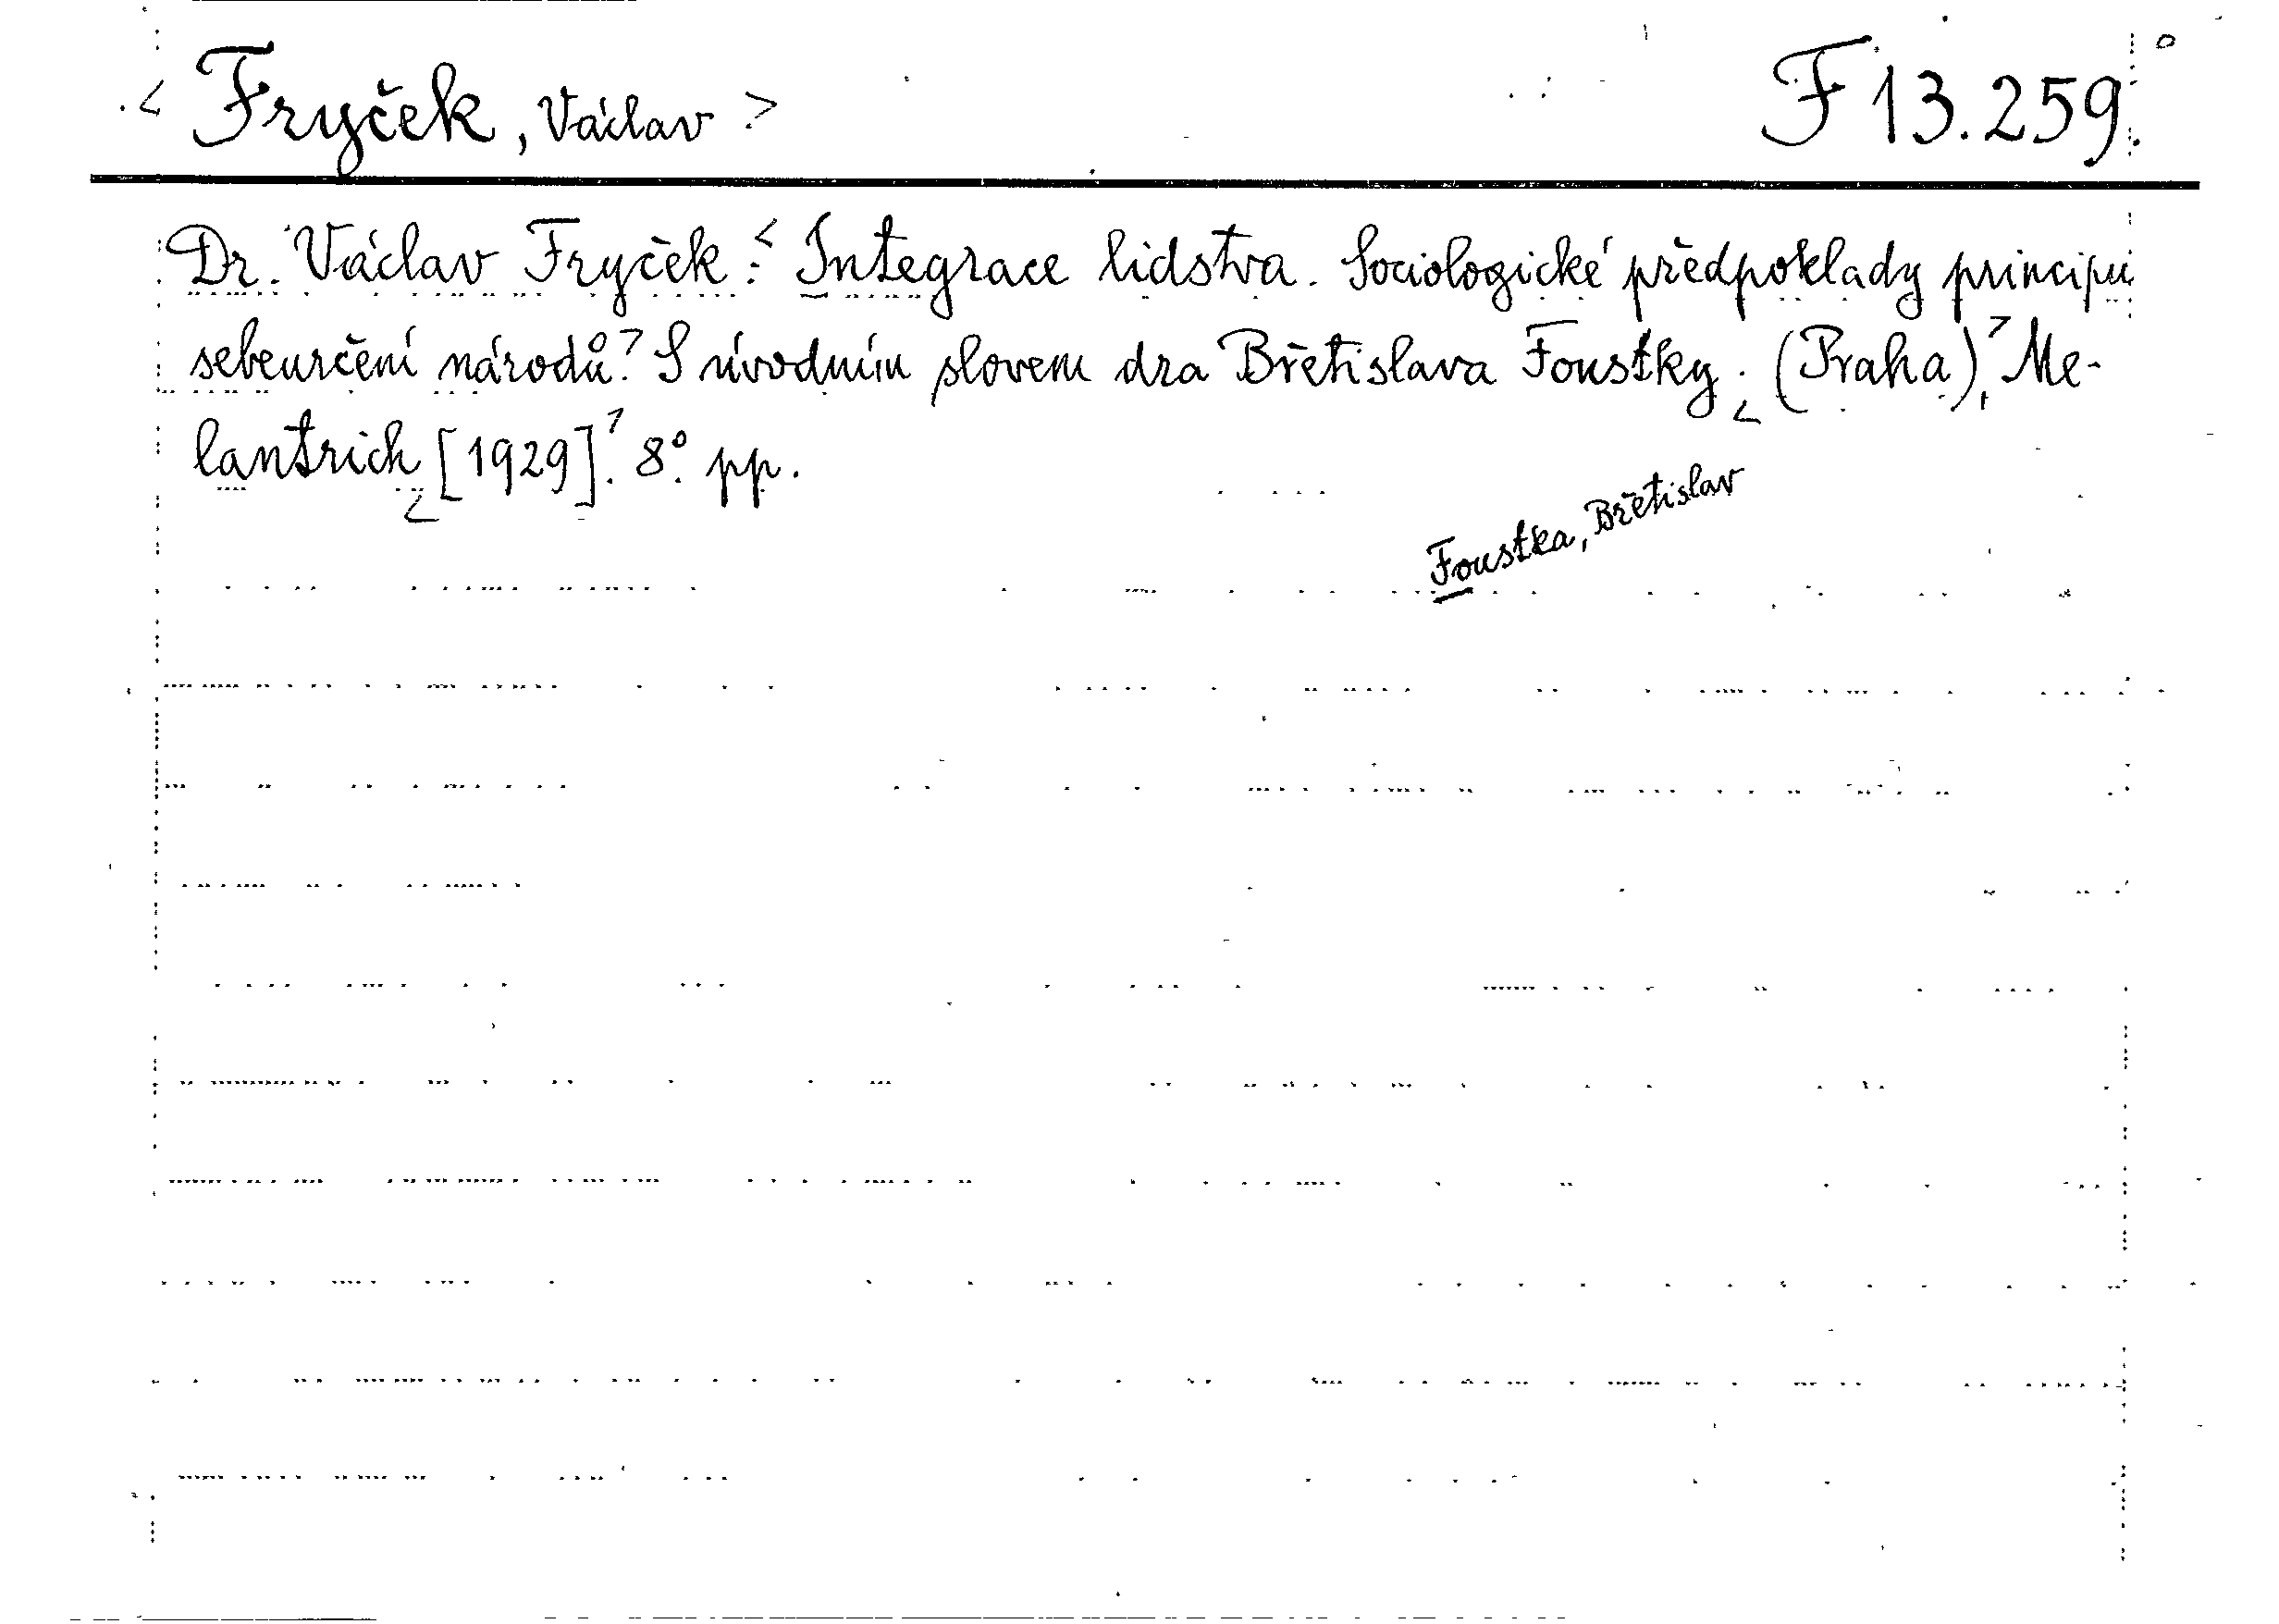 < Fryček, Václav > F 13.259.
Dr. Václav Fryček: < Integrace lidstva. Sociologické předpoklady principu
sebeurčení národů. > S úvodním slovem dra Břetislava Foustky. < (Praha), > Me-
lantrich < [1929]. > 8°. pp.
Foustka, Břetislav